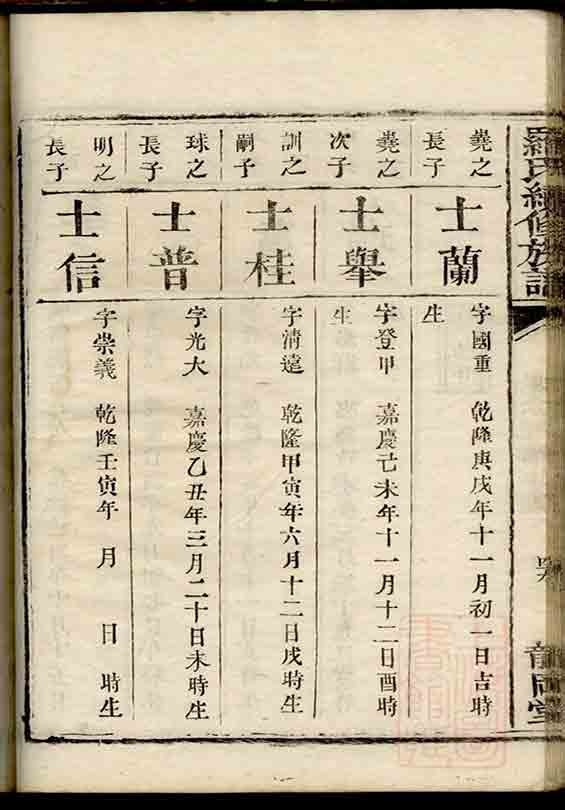 羅氏續修族譜
堯之
長子
士蘭
字國重 乾隆庚戌年十一月初一日吉時
生
堯之
次子
士舉
字登甲 嘉慶己未年十一月十二日酉時
生
訓之
嗣子
士桂
字清遠 乾隆甲寅年六月十二日戌時生
球之
長子
士普
字光大 嘉慶乙丑年三月二十日未時生
明之
長子
士信
字崇義 乾隆壬寅年 月 日 時生